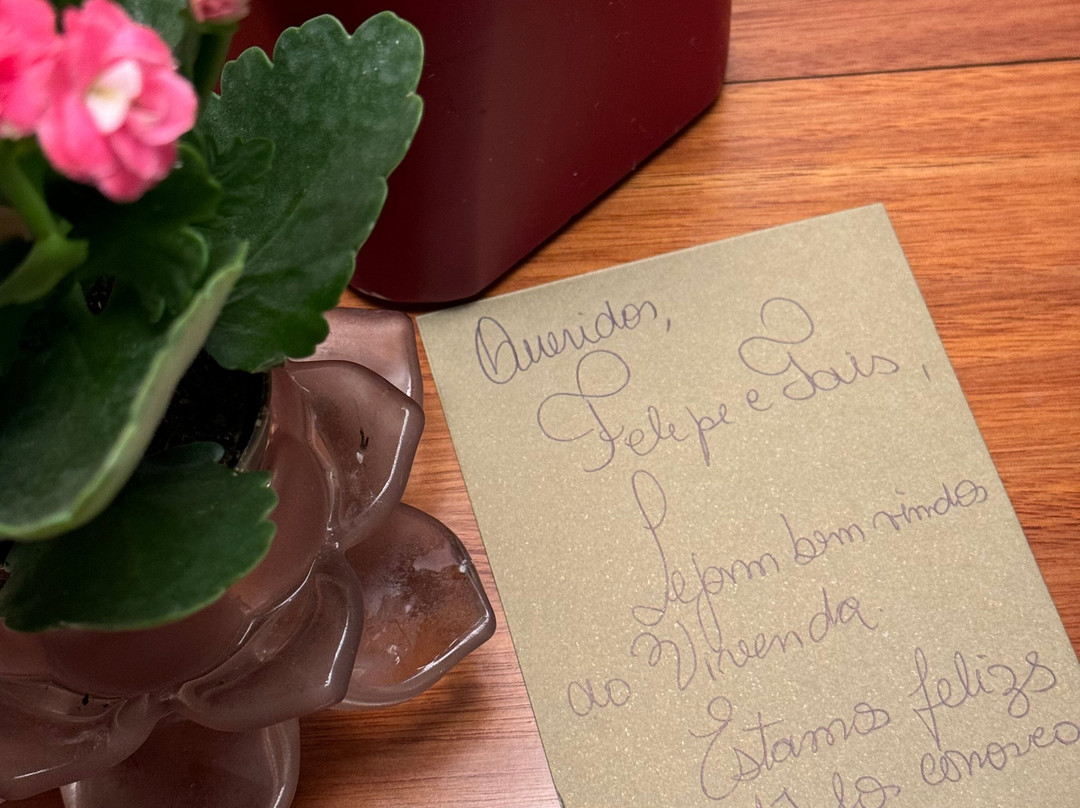 Queridos,
Felipe e Tais,
Sejam bem vindos
ao Vivenda
Estamos felizs
conosco